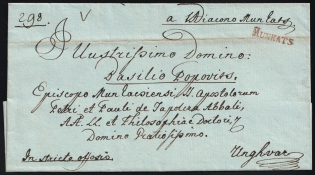 293. V a Diacono Munkats.
MUNKATS
Illustrissimo Domino:
Basilio Popovits,
Episcopo Munkacsiensi, S. Apostolorum
Petri et Pauli de Tapolcza Abbati,
AA. LL. et Philosophiæ Doctori,
Domino Gratiosissimo.
In stricto officioso Unghvar